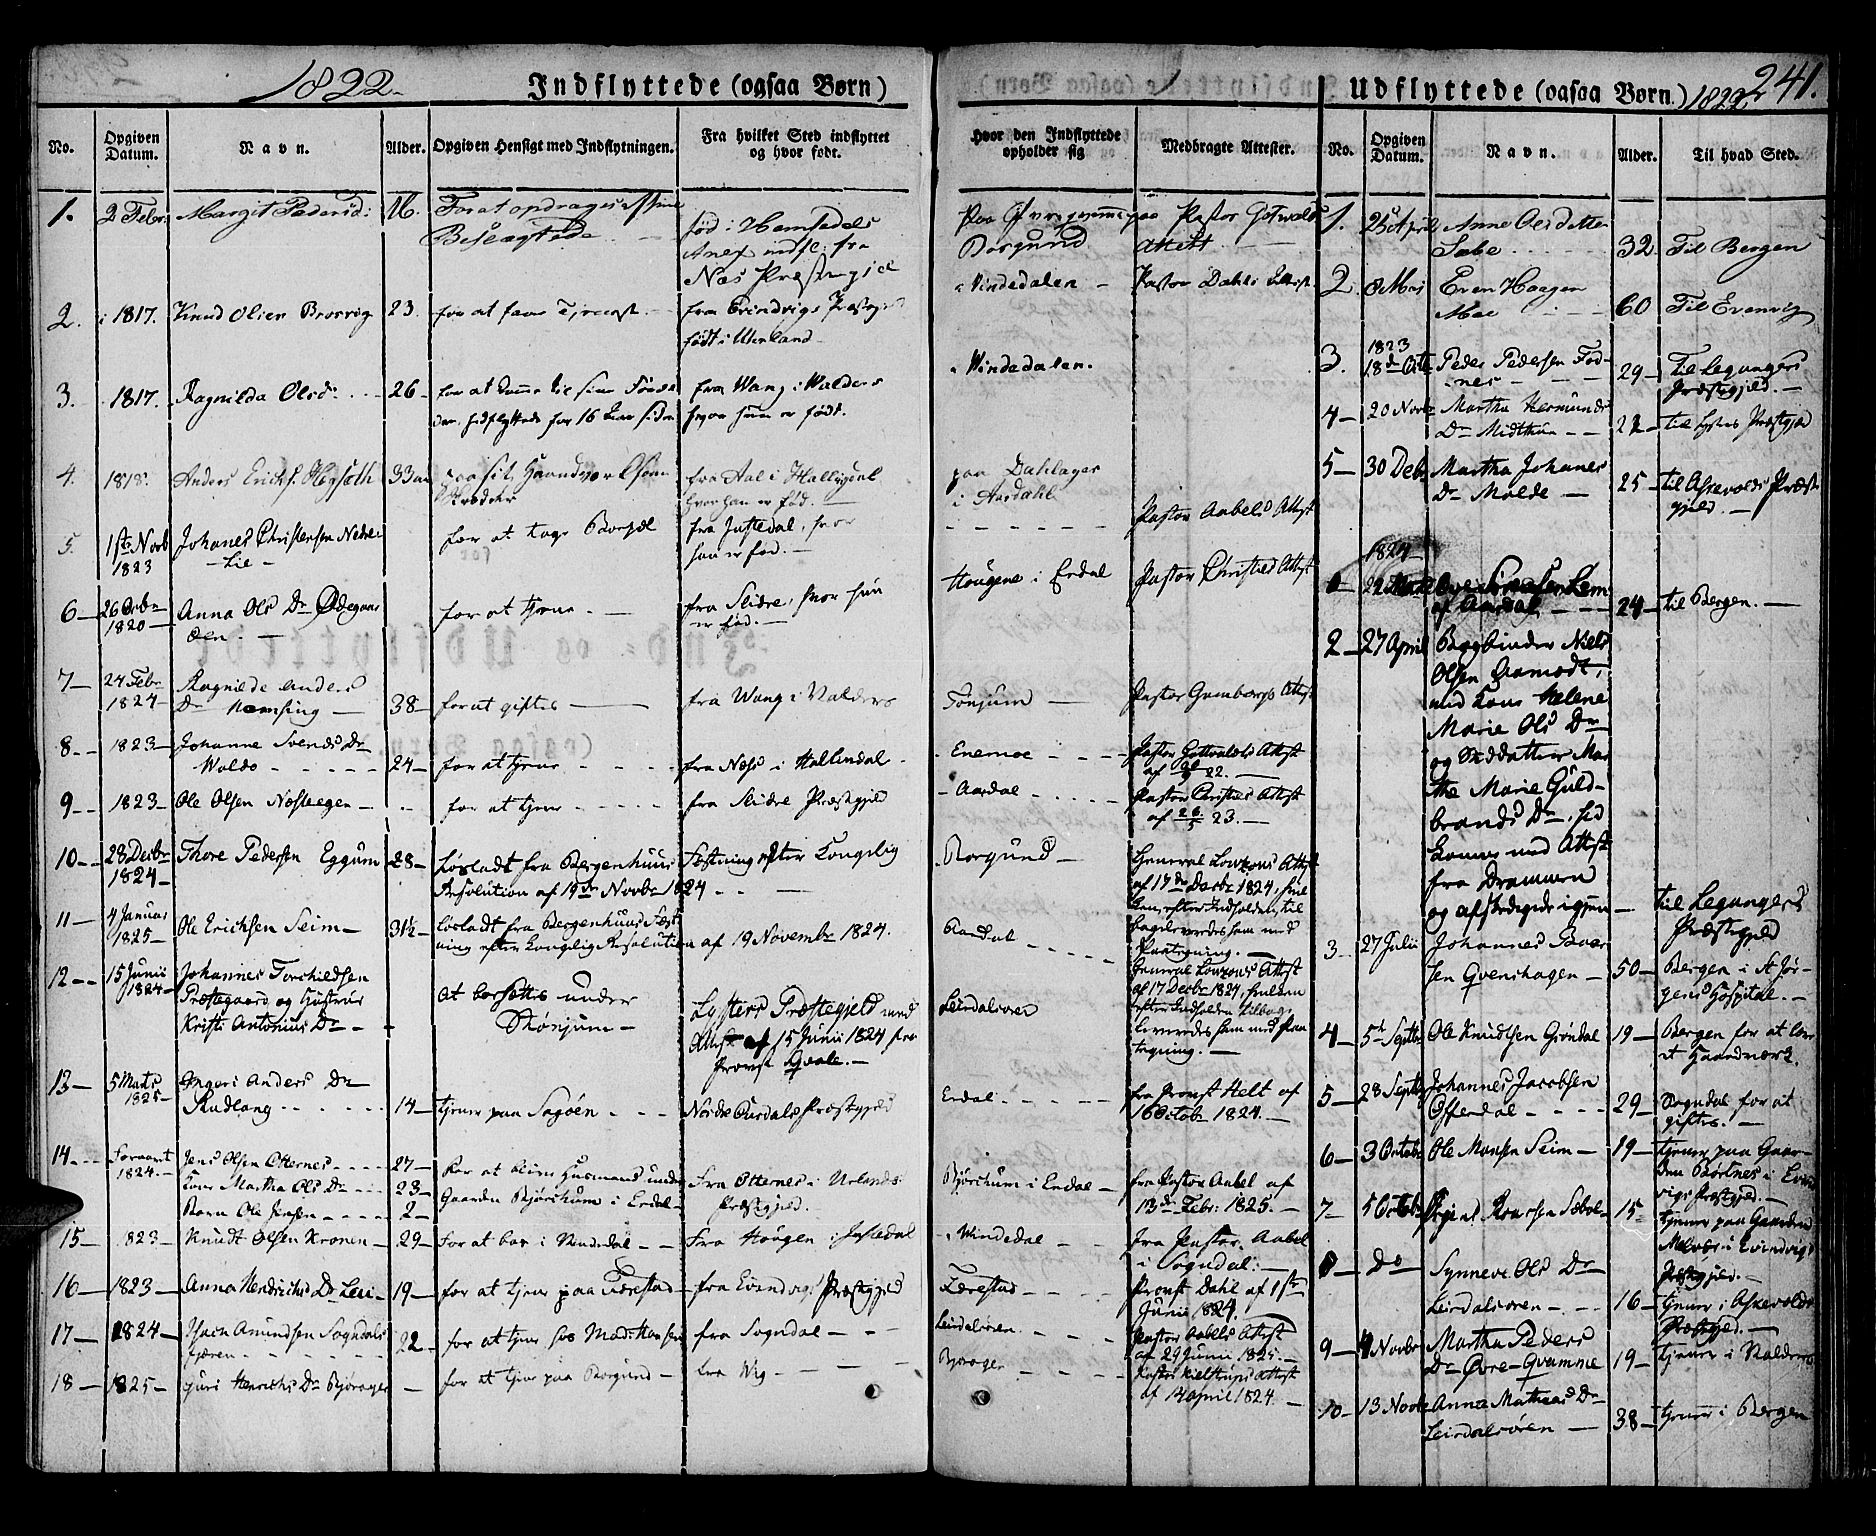 1822.
Indflyttede (ogsaa Børn)
No.
Opgiven Datum.
Navn.
Alder.
Opgiven Hensigt med Indflytningen.
Fra hvilket Sted indflyttet og hvor født.
Hvor den Indflyttede opholder sig
Medbragte Attester.
1. 2 Febr. Margit Pedersd: 16. For at opdrages
Beslægtede
fød i Hemsedals
Anex indfl: fra
Næs Præstegjeld
Borgund
Pastor Gotwalds
Attest
2. i 1817. Knud Olsen Brosvig 23. for at faae Tjeneste fra Evindvigs Præstegj
født i Urland
Vindedalen Pastor Dahls Attest.
3. 1817. Ragnilda Olsd: 26 for at komme til sine
der hidflyttede for 16 Aar siden
fra Wang i Walders
hvor hun er født.
Vindedalen.
4. 1818. Anders Erichs. Høgseth 33
Skræder
fra Aal i Hallingdal
hvor han er fød.
paa Dahlager
i Aardahl
5. 1ste Novb 1823 Johanes Christensen Nedre
Lie
for at tage Borsæl
fra Justedal, hvor
han er fød.
Pastor Aabels Attest
6 26 Octbr 1820 Anna Ols Dr Ødegaar
den
for at tjene
fra Slidre, hvor hun
er fød.
Hougene i Erdal Pastor Christies Attest
7 24 Febr 1824 Ragnilde Anders
Dr 38 for at giftes fra Wang i Valders
Tønjum Pastor Attest
8 1823 Johanne Svends Dr
Wolds 24 for at tjene fra Næss i Hallindal
Enemoe Pastor Gottvalds Attest
af 22.
9 1823 Ole Olsen Nosteegen for at tjene fra Slidre Præstgjeld
Aardal Pastor Christies Attest
af 26/5 23.
10 28 Decbr 1824 Thore Pedersen Eggum 28 Løsladt fra Bergenhuus Fæstning efter Kongelig
Resolution af 19de Novbr 1824
Borgund
General Lowzons Attest
af 17de Decbr 1824, hvil
ken, efter Indholden, til
bageleveredes ham med
Paategning.
11 4 Januar 1825 Ole Erichsen Seim 31½ løsladt fra Bergenhuus Fæst
ning efter Konglig Resolution af 19 November 1824.
Aardal
General Lowzons Attest
af 17 Decbr 1824, hvilken
efter Indholden tilbag
leveredes ham med Paa
tegning.
12 15 Junii 1824 Johannes Torchildsen
Præstegaard og Hustrue
Kristi Antonius Dr
at bosættes under
Thønjum
Lysters Præstegjeld med
Attest af 15 Junii 1824 fra
Provst Qvale.
Leirdalsøren
13 5 Marts 1825 Ingeri Anders Dr
Skudlang 14 tjener paa Sagøen
Nordre Ourdals Præstgjeld
Erdal
fra Provst Helt af
16 Octobr 1824.
14 Foraaret 1824 Jens Olsen Otternes 27
Kone Martha Ols Dr 23
Barn Ole Jensen 2
for at blive Huusmand under
Gaarden Bjørkum i Erdal
Fra Otternes i Urlands
Præstgjeld.
Bjørkum i Erdal
fra Pastor Aabel af
13de Febr: 1825.
15 1823 Knudt Olsen Kronen 29 For at boe i Vendedal Fra Hougen i Justedal
Windedal
fra Pastor Aabel
i Sogndal:
16 1823 Anna Hendrichs Dr Leri 19 for at tjene paa Færestad fra Evindvigs Præstgjeld
Færestad
Provst Dahl af 1ste
Junii 1824.
17 1824 Isach Amundsen Sogndals
fjæren 22 for at tjene hos Mad: Hansen fra Sogndal
Leirdalsøren
Pastor Aabels Attest
af 29 Junii 1825.
18 1825 Guri Henrichs Dr Bjøraager for at tjene paa Borgund fra Wig
Bjøraager
Pastor Kielstrups Attest
af 14 April 1824.
Udflyttede (ogsaa Børn.) 1822
241.
No.
Opgiven Datum.
Navn.
Alder.
Til hvad Sted.
1. 25 April Anne Olsdatter
Sæbe 32. Til Bergen
2 8 Mai Even Haagen
Moe 60 Til Evenvig
3. 1823 18de Octb Peder Pedersen Fod
nes 29 Til Legangers
Præstgjeld.
4 20 Novb Martha Hermunds
Dr Midthun 22 til Lysters Præstgjeld
5 30 Debr Martha Johanes
Dr Molde 25 til Askevolds Præst
gjeld.
1824
1 22 Lem
af Aardal 24 til Bergen.
2 27 April Bogbinder Niels
Olsen Aamodt,
med Kone Helene
Marie Ols Dr
og Steddatter Mar
the Marie Guld
brands Dr, hid
kommen med Attest
fra Drammen
og afskedigede igjen
til Legangers
Præstgjeld
3 27 Julii Johannes Boer
sen Qvenshagen 50 Bergen i St Jør
gens Hospital.
4 5te Septbr Ole Knudtsen Grøndal 19 Bergen for at lære
et Haandværk.
5 28 Septbr Johannes Jacobsen
Offerdal 29 Sogndal for at
giftes.
6 3 Octobr Ole Monsen Seim 19 tjener paa Gaar
den Bortnes i Evind
vigs Præstgjeld.
7 5 Octobr Sæbøe 15 tjener paa Gaarden
i Evindvigs
Præstgjeld.
8 Do Synneve Ols Dr
Leirdalsøren 16 tjener i Askevolds
Præstgjeld.
9 4 Novbr Martha Peders
Dr Øvre-Qvamme 19 tjener i Valders
10 13 Novbr Anna Mathias Dr
Leirdalsøren 38 tjener i Bergen